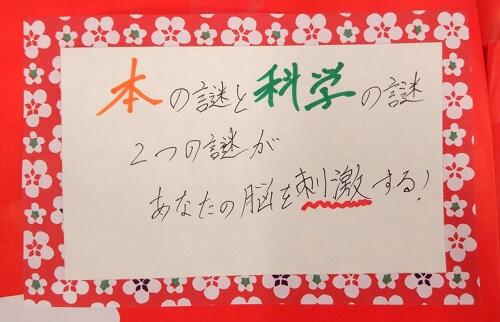 本の謎と科学の謎
2つの謎が
あなたの脳を刺激する!